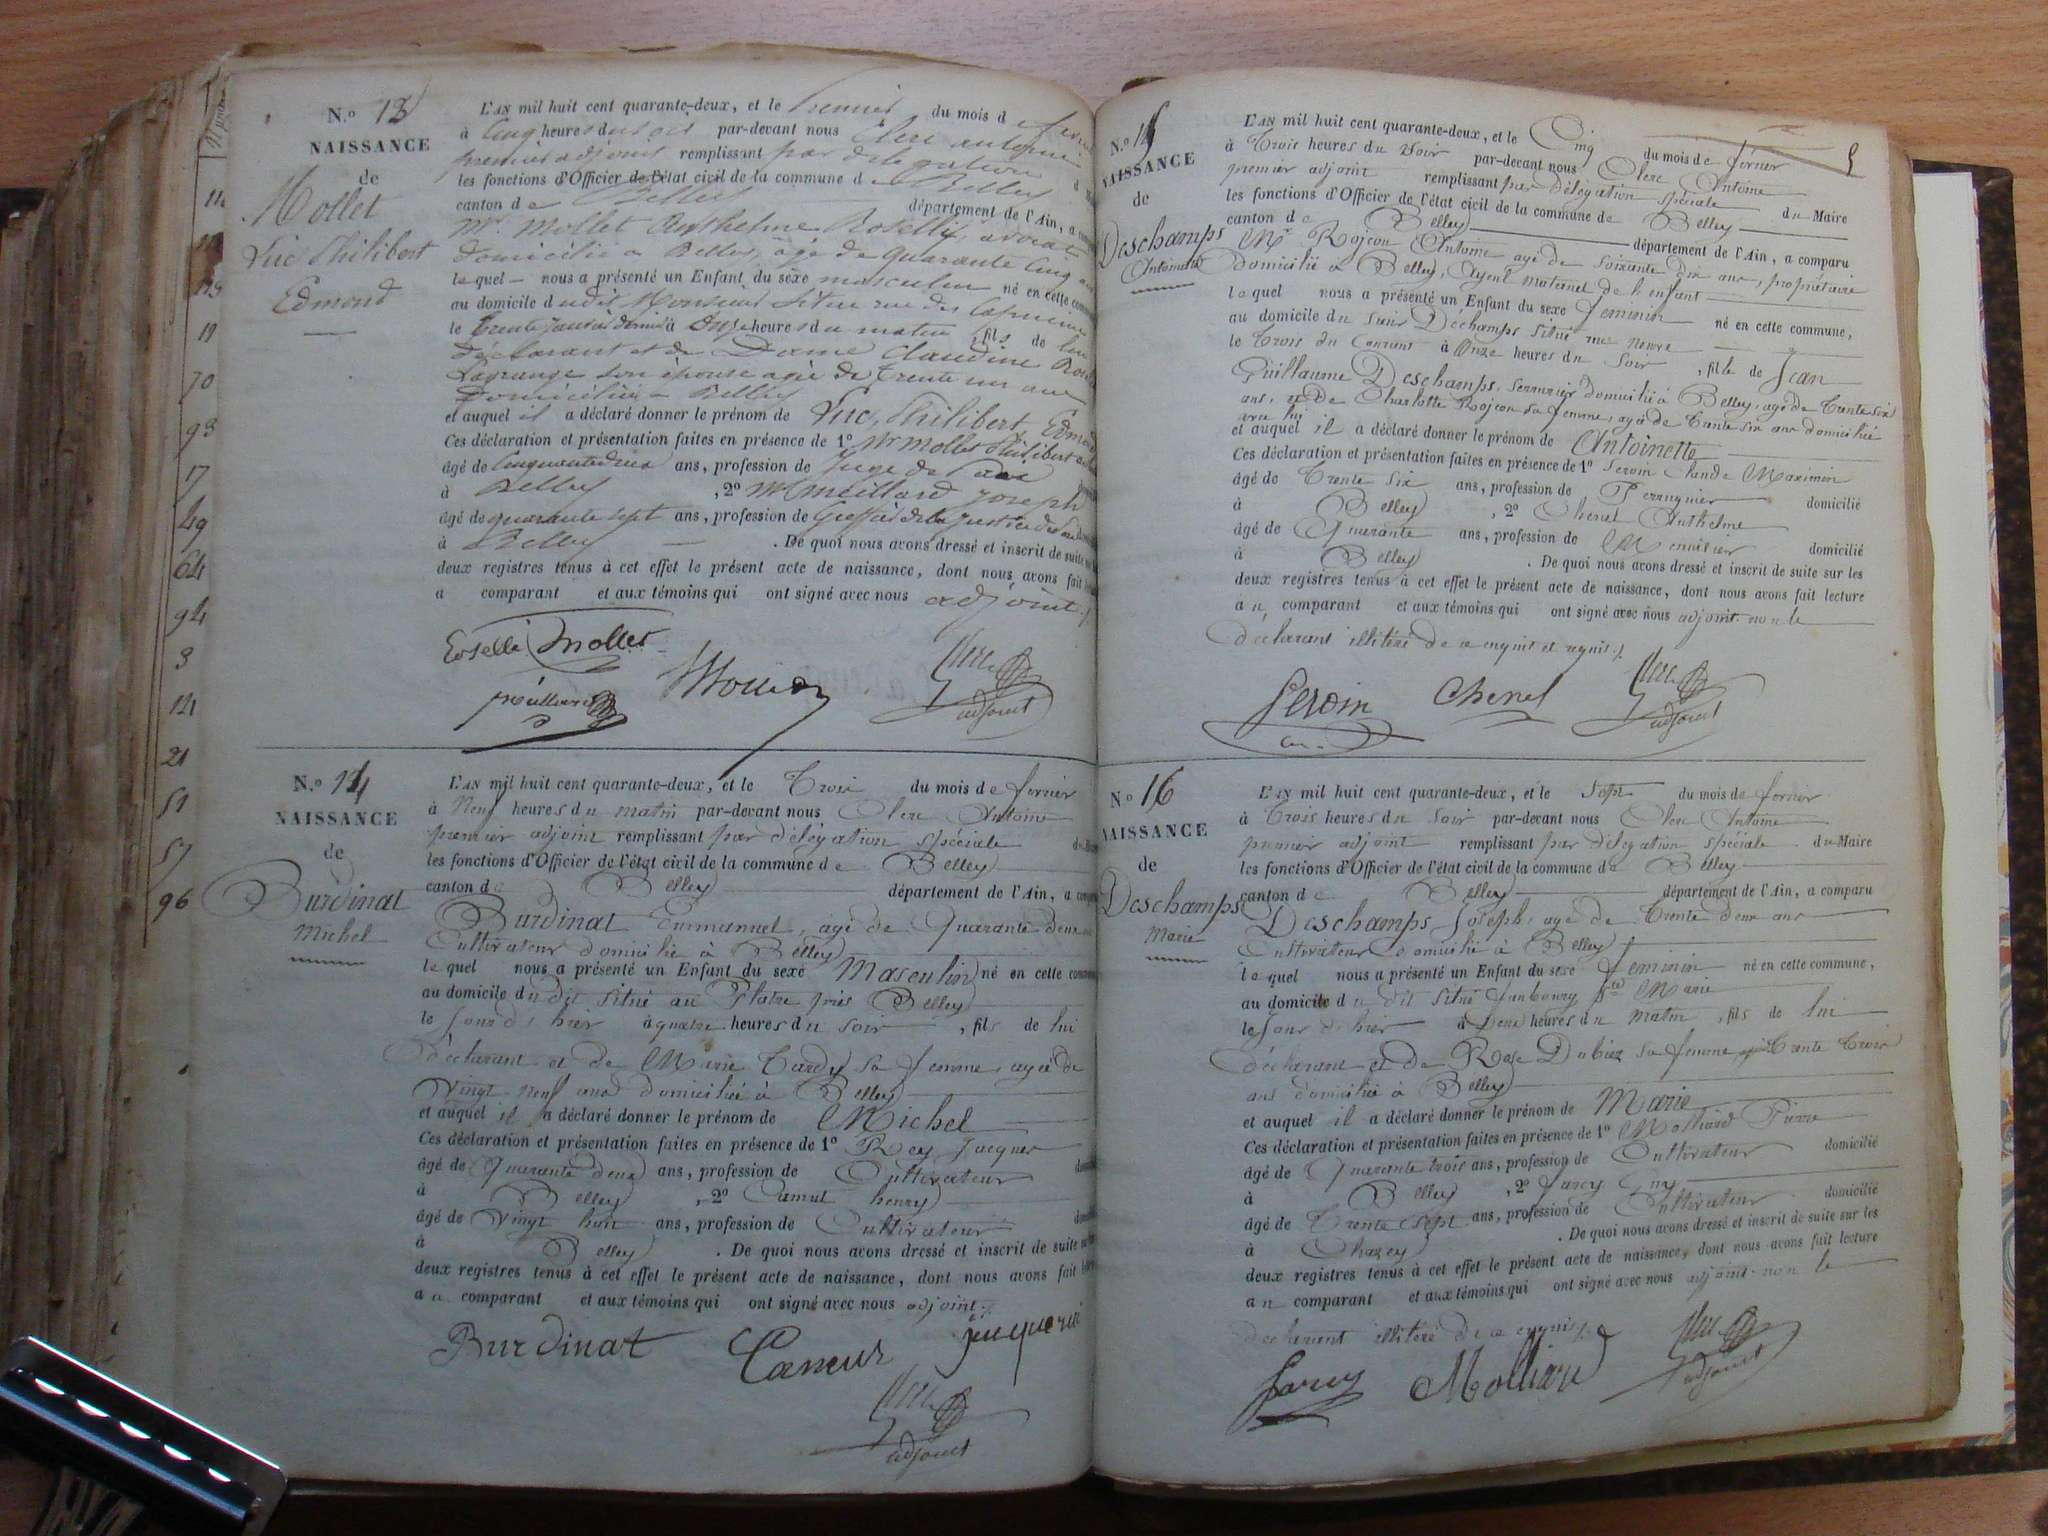 N.o 13
NAISSANCE
de
Mollet
Luc Philibert
Edmond
L'AN mil huit cent quarante-deux, et le Premier du mois d
à Cinq heures du soir par-devant nous Clerc antoine
premier adjoint remplissant par delegation
les fonctions d'Officier de l'état civil de la commune de Belley
canton de Belley département de l'Ain, a
Mr. Mollet Anthelme Roselly, avocat
domicilié a Belley, agé de quarante Cinq
lequel nous a présenté un Enfant du sexe masculin né en cette
au domicile dudit Monsieur situé rue des Capucins
le trente janvier dernier à onze heures du matin, fils de lui
déclarant et de Dame Claudine
Lagrange son épouse agée de trente un ans
domiciliée a Belley
et auquel il a déclaré donner le prénom de Luc, Philibert, Edmond
Ces déclaration et présentation faites en présence de 1o Mr mollet Philibert
âgé de Cinquante deux ans, profession de Juge de Paix
à Belley, 2o Mr meillard Joseph
âgé de quarante sept ans, profession de Greffier de la justice de
à Belley. De quoi nous avons dressé et inscrit de suite
deux registres tenus à cet effet le présent acte de naissance, dont nous avons fait
a comparant et aux témoins qui ont signé avec nous adjoint
Roselli Mollet
Clerc
adjoint
N.o 14
NAISSANCE
de
Burdinat
Michel
L'AN mil huit cent quarante-deux, et le Trois du mois de fevrier
à Neuf heures du matin par-devant nous Clerc Antoine
premier adjoint remplissant par délégation spéciale
les fonctions d'Officier de l'état civil de la commune de Belley
canton de Belley département de l'Ain, a
Burdinat Emmanuel, agé de Quarante deux
Cultivateur domicilié à Belley
lequel nous a présenté un Enfant du sexe Masculin né en cette
au domicile du dit situé au Platre près Belley
le Jour d'hier à quatre heures du soir, fils de lui
déclarant et de Marie Tardy sa femme, agée de
Vingt neuf ans domiciliée à Belley
et auquel il a déclaré donner le prénom de Michel
Ces déclaration et présentation faites en présence de 1o Rey Jacques
âgé de Quarante deux ans, profession de Cultivateur
à Belley, 2o Camus henry
âgé de Vingt huit ans, profession de Cultivateur
à Belley. De quoi nous avons dressé et inscrit de suite
deux registres tenus à cet effet le présent acte de naissance, dont nous avons fait
au comparant et aux témoins qui ont signé avec nous adjoint
Burdinat Camus
Clerc
adjoint
11
70
93
17
49
64
94
3
121
21
51
57
96
5
N.o 15
NAISSANCE
de
Deschamps
Antoinette
L'AN mil huit cent quarante-deux, et le Cinq du mois de février
à Trois heures du Soir par-devant nous Clerc Antoine
premier adjoint remplissant par délégation spéciale du Maire
les fonctions d'Officier de l'état civil de la commune de Belley
canton de Belley département de l'Ain, a comparu
Mr Rojeon Antoine agé de soixante dix ans, propriétaire
domicilié à Belley, Ayent maternel de l'enfant
lequel nous a présenté un Enfant du sexe feminin né en cette commune,
au domicile du sieur Déchamps situé rue neuve
le Trois du Courant à Onze heures du Soir, fille de Jean
Guillaume Deschamps, serrurier domicilié à Belley, agé de trente six
ans, et de Charlotte Rojeon sa femme, agée de trente six ans domiciliée
avec lui
et auquel il a déclaré donner le prénom de Antoinette
Ces déclaration et présentation faites en présence de 1o Seroin Claude Maximin
âgé de Trente six ans, profession de Perruquier domicilié
à Belley, 2o Chenel Anthelme
âgé de Quarante ans, profession de Menuisier domicilié
à Belley. De quoi nous avons dressé et inscrit de suite sur les
deux registres tenus à cet effet le présent acte de naissance, dont nous avons fait lecture
au comparant et aux témoins qui ont signé avec nous adjoint non le
déclarant illitéré de ce enquis et requis
Seroin Chenel Clerc
adjoint
No 16
NAISSANCE
de
Deschamps
Marie
L'AN mil huit cent quarante-deux, et le Sept du mois de fevrier
à Trois heures du Soir par-devant nous Clerc Antoine
premier adjoint remplissant par délégation spéciale du Maire
les fonctions d'Officier de l'état civil de la commune de Belley
canton de Belley département de l'Ain, a comparu
Deschamps Joseph, agé de Trente deux ans
Cultivateur domicilié à Belley
lequel nous a présenté un Enfant du sexe feminin né en cette commune,
au domicile du dit situé faubourg Ste Marie
le Jour d'hier à Deux heures du matin, fils de lui
déclarant et de Rose Dubiez sa femme agée Trente Trois
ans domiciliée à Belley
et auquel il a déclaré donner le prénom de Marie
Ces déclaration et présentation faites en présence de 1o Molliard Pierre
âgé de Quarante trois ans, profession de Cultivateur domicilié
à Belley, 2o Jarcy Guy
âgé de Trente Sept ans, profession de Cultivateur domicilié
à Chazey. De quoi nous avons dressé et inscrit de suite sur les
deux registres tenus à cet effet le présent acte de naissance, dont nous avons fait lecture
au comparant et aux témoins qui ont signé avec nous adjoint non le
déclarant illitéré de ce enquis
Jarcy Molliard Clerc
adjoint